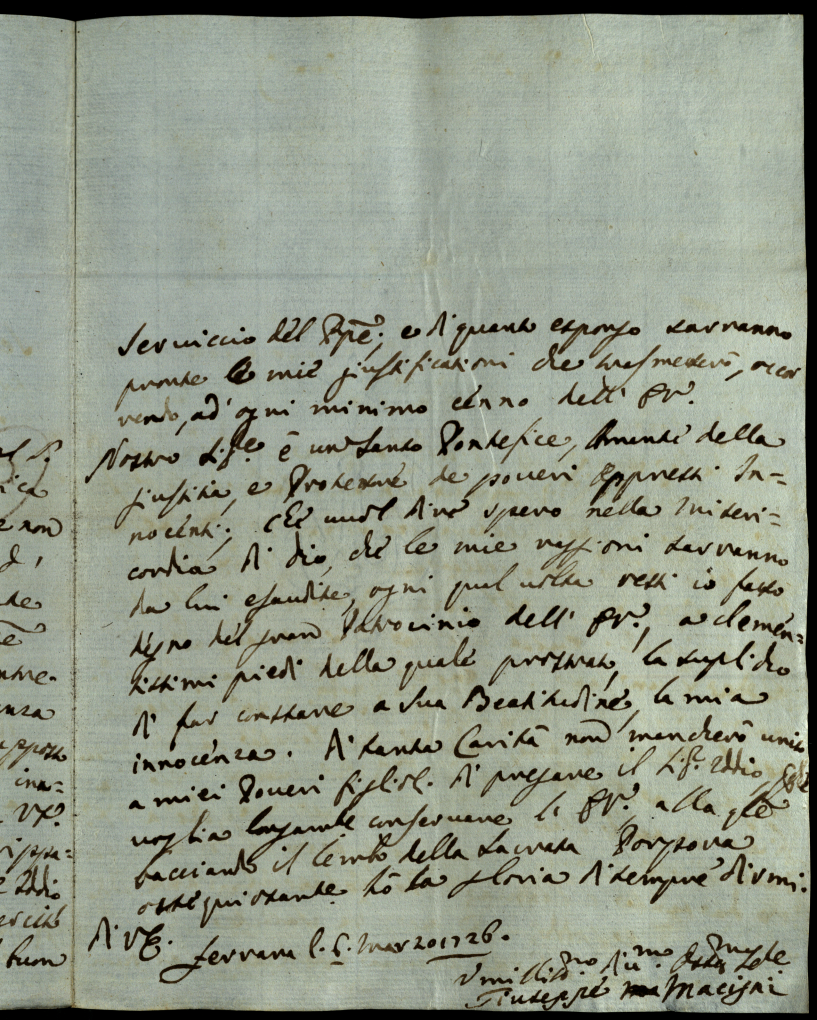 Serviccio del Ppē; e di quanto espongo sarranno
pronte le mie justificationi che trasmetterò, occor
rendo, ad' ogni minimo cenno dell' EV.
Nostro Sig.re è un Santo Pontefice, Amante della
justitia, e Protettore de poveri Oppressi In=
nocenti; Che vuol dire spero nella Miseri=
cordia di Dio, che le mie raggioni sarranno
da lui esaudite, ogni qual volta resti io fatto
degno del gran Patrocinio dell' EV., a clemen=
tissimi piedi della quale prostrato, la suplico
di far constare a Sua Beatitudine, la mia
innocenza. Di tanta Carità non mancherò unito
a miei Poveri figlioli di pregare il Sig.r Iddio,
voglia longam.te conservare l' EV. alla q̄le
bacciando il lembo della Sacrata Porpora
ossequiosante hò la gloria di sempre dirmi.
Di VE.
Ferrara l. 6. Marzo 1726.
Vmilliss.mo Di.mo Oss.mo Se.re
Giuseppe Macigni
rica
e non
d'
te
ntre-
nza
apposto
inn=
VE.
Iddio
buon